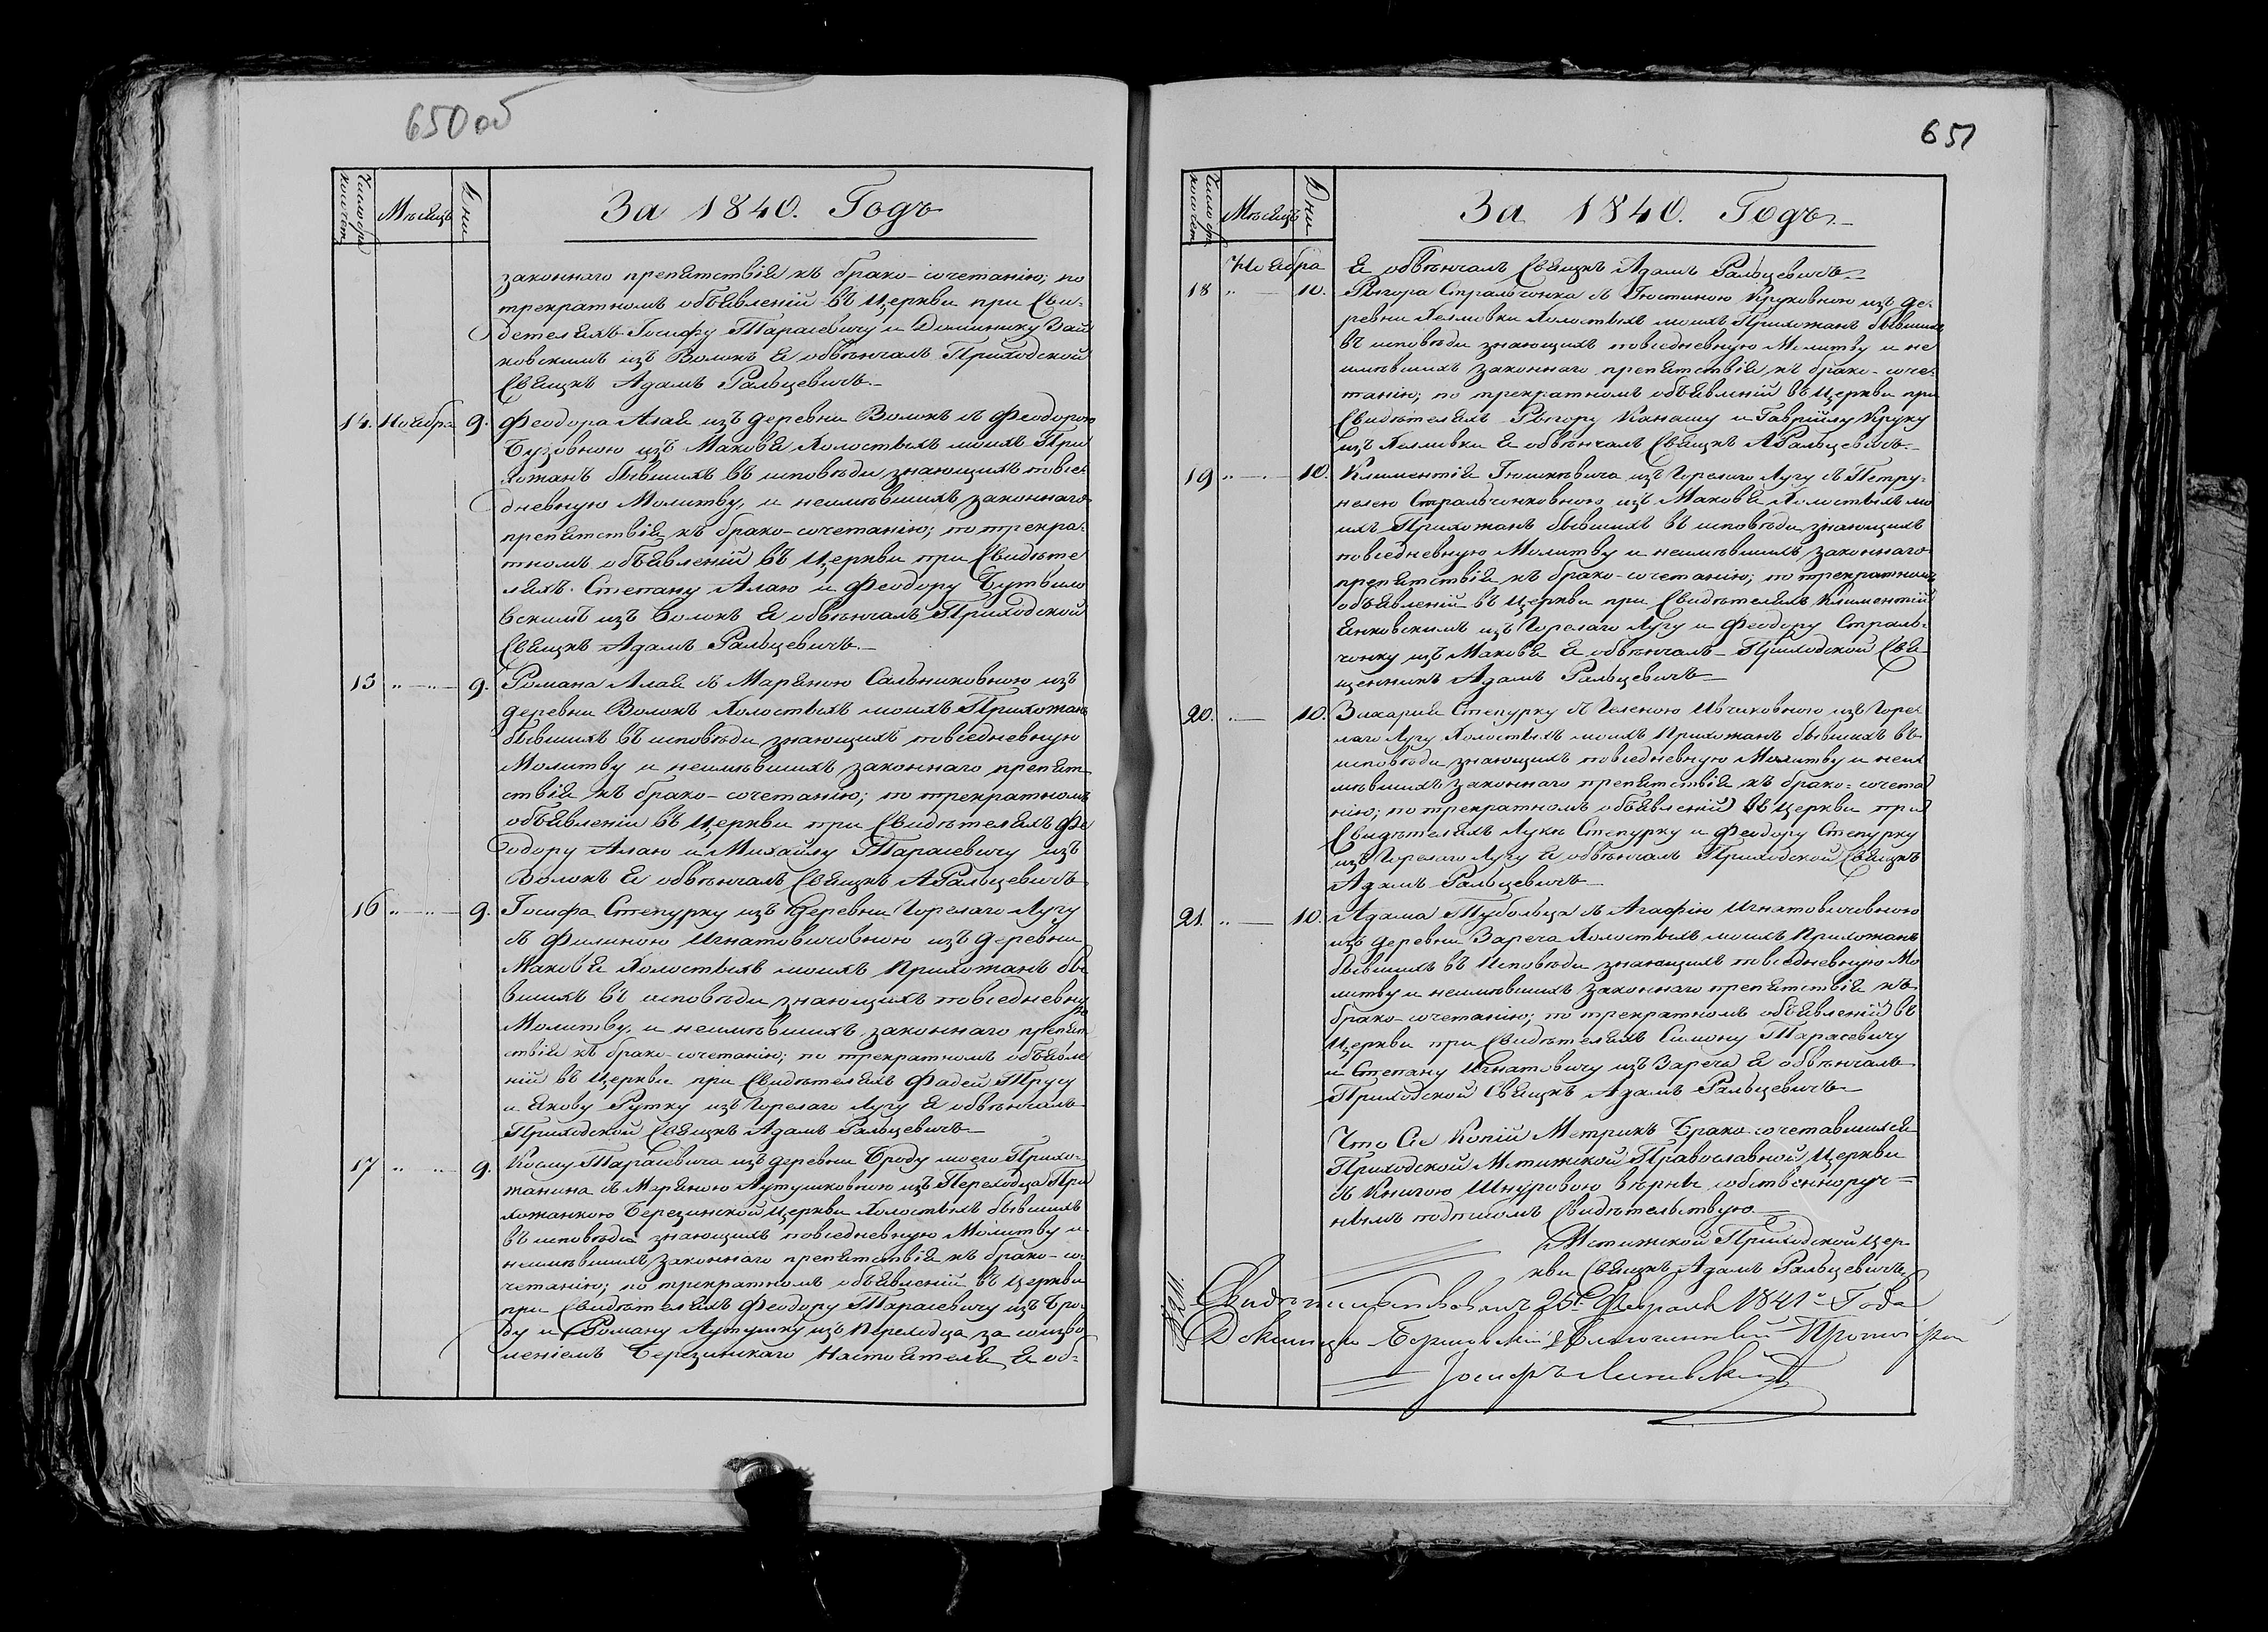 650 об
Число бра
косочет.
Мѣсяцъ
Дни
За 1840. Годъ
законнаго препятствія къ брако-сочетанію; по
трекратномъ объявленій въ Церкви при Сви-
детеляхъ Іосифу Тарасевичу и Доминику Вай
ковскимъ изъ Волокъ Я обвѣнчалъ Приходской
Свящкъ Адамъ Ральцевичъ.
14. Ноября 9. Феодора Алая изъ деревни Волокъ съ Феодорою
Бузовною изъ Маковя холостыхъ моихъ При
хожанъ бывшихъ въ исповѣди знающихъ повсе
дневную Молитву, и неимѣвшихъ законнаго
препятствія къ брако-сочетанію; по трекра-
тномъ объявленій въ Церкви при Свидѣте
ляхъ Степану Алаю и Феодору Бутвило
вскимъ изъ Волокъ Я обвѣнчалъ Приходской
Свящкъ Адамъ Ральцевичъ.
15 „ — „ — 9. Романа Алая съ Маряною Сальниковною изъ
деревни Волокъ холостыхъ моихъ Прихожанъ
бывшихъ въ исповѣди знающихъ повседневную
Молитву и неимѣвшихъ законнаго препят
ствія къ брако-сочетанію; по трекратномъ
объявленіи въ Церкви при Свидѣтеляхъ Фе
одору Алаю и Михайлу Тарасевичу изъ
Волокъ Я обвѣнчалъ Свящкъ АРальцевичъ
16 „ — „ — 9. Іосифа Степурку изъ Деревни Горелаго Лугу
съ Филиною Игнатовичовною изъ деревни
Маковя холостыхъ моихъ Прихожанъ бы
вшихъ въ исповѣди знающихъ повседневну
ю
Молитву, и неимѣвшихъ законнаго препят
ствія къ брако-сочетанію; по трекратномъ объявле
ній въ Церкви при Свидѣтеляхъ Фадей Трусу
и Якову Рутку изъ Горелаго Лугу Я обвѣнчалъ
Приходской Свящкъ Адамъ Ральцевичъ
17 „ „ 9. Косму Тарасевича изъ деревни Броду моего Прихо-
жанина съ Маряною Лутушковною изъ Переходца При
хожанкою Березинской Церкви холостыхъ бывшихъ
въ исповѣди знающихъ повседневную Молитву и
неимѣвшихъ законнаго препятствія къ брако-со-
четанію; по трекратномъ объявленій въ Церкви
при Свидѣтеляхъ Феодору Тарасевичу изъ Бро-
ду и Роману Лутушку изъ Переходца за соизво
леніемъ Березинскаго Настоятеля Я об-
651
Число бра
косочет.
Мѣсяцъ
Дни
За 1840. Годъ.
Ноября Я обвѣнчалъ Свящкъ Адамъ Ральцевичъ
18 „ — 10. Рыгора Стральчонка съ Юстиною Круковною изъ де-
ревни холостыхъ моихъ Прихожанъ бывшихъ
въ исповѣди знающихъ повседневную Молитву и не
имѣвшихъ законнаго препятствія къ брако-соче-
танію; по трекратномъ объявленій въ Церкви при
Свидѣтеляхъ Рыгору Канашу и Гаврійлу Круку
изъ Я обвѣнчалъ Свящкъ АРальцевичъ
19 „ — . — 10. Климентія изъ Горелаго Лугу съ Петру-
нелею Стральчонковною изъ Маковя холостыхъ мо
ихъ Прихожанъ бывшихъ въ исповѣди знающихъ
повседневную Молитву и неимѣвшихъ законнаго
препятствія къ брако-сочетанію; по трекратномъ
объявленій въ Церкви при Свидѣтеляхъ Климентій
Янковскимъ изъ Горелаго Лугу и Феодору Страль-
чонку изъ Маковя Я обвѣнчалъ Приходской Свя
щенникъ Адамъ Ральцевичъ
20. „ — 10. Захарія Степурку съ Геленою Ивчиковною изъ Горе
лаго Лугу холостыхъ моихъ Прихожанъ бывшихъ въ
исповѣди знающихъ повседневную Молитву и неи
мѣвшихъ законнаго препятствія къ брако-сочета
нію; по трекратномъ объявленій въ Церкви при
Свидѣтеляхъ Лукѣ Степурку и Феодору Степурку
изъ Горелаго Лугу Я обвѣнчалъ Приходской Свящкъ
Адамъ Ральцевичъ
21. „ — 10. Адама Тубольца съ Агафію Игнатовичовною
изъ деревни Зареча холостыхъ моихъ Прихожанъ
бывшихъ въ Исповѣди знающихъ повседневную Мо
литву и неимѣвшихъ законнаго препятствія къ
брако-сочетанію; по трекратномъ объявленій въ
Церкви при Свидѣтеляхъ Симону Тарасевичу
и Степану Игнатовичу изъ Зареча Я обвѣнчалъ
Приходской Свящкъ Адамъ Ральцевичъ
Что Сіе Копій Метрикъ Брако-сочетавшихся
Приходской Мстижской Православной Церкви
съ Книгою Шнуровою вѣрны собственноруч-
нымъ подписомъ Свидѣтельствую
Мстижской Приходской Цер-
кви Свящкъ Адамъ Ральцевичъ
Свидѣтельствовалъ 25 Февраля 1841го Года
Докшицко Борисовскій Благочинный Протоіерей
Іосифъ